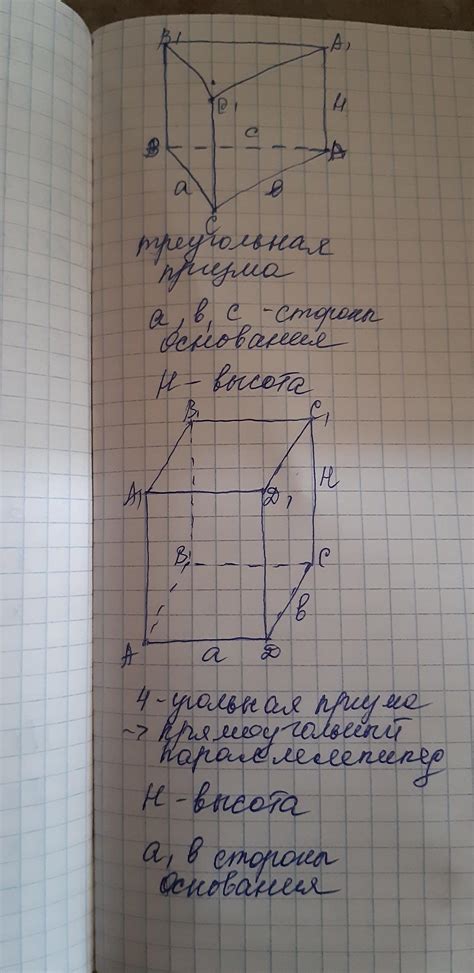 В₁ А₁
С₁ Н
В с А
а в
С
треугольная
призма
а, в, с - стороны
основания
Н - высота
В₁ С₁
А₁ Д₁ Н
В С
в
А а Д
4-угольная призма
-> прямоугольный
параллелепипед
Н - высота
а, в стороны
основания